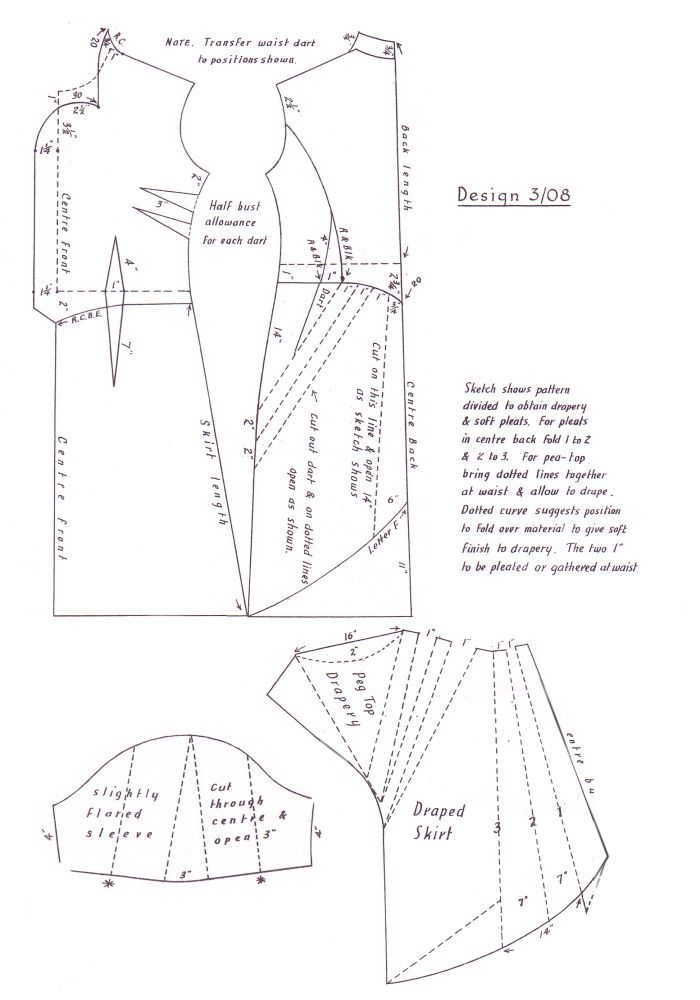 NOTE. Transfer waist dart
to positions shown.
R.C.
20
1"
30
2½"
3½"
1¼"
Centre Front
1¼"
2"
R.C.B.E.
4"
1"
7"
2"
3"
Half bust
allowance
For each dart
2½"
¾"
Back length
4"
R&BIK
R&BIK
1"
1"
Dart
2¾"
RO
14"
Cut on this line & open 14"
as sketch shows
Centre Back
2"
2"
Cut out dart & on dotted lines
open as shown.
6"
Letter F
11"
Skirt length
Centre front
Design 3/08
Sketch shows pattern
divided to obtain drapery
& soft pleats. For pleats
in centre back fold 1 to 2
& 2 to 3. For pea-top
bring dotted lines together
at waist & allow to drape.
Dotted curve suggests position
to fold over material to give soft
finish to drapery. The two 1"
to be pleated or gathered at waist.
16"
2"
1"
1"
1"
1"
Peg Top
Drapery
Draped
Skirt
3
2
1
7"
7"
14"
entre ba
slightly
Flared
sleeve
Cut
through
centre &
open 3"
4"
4"
3"